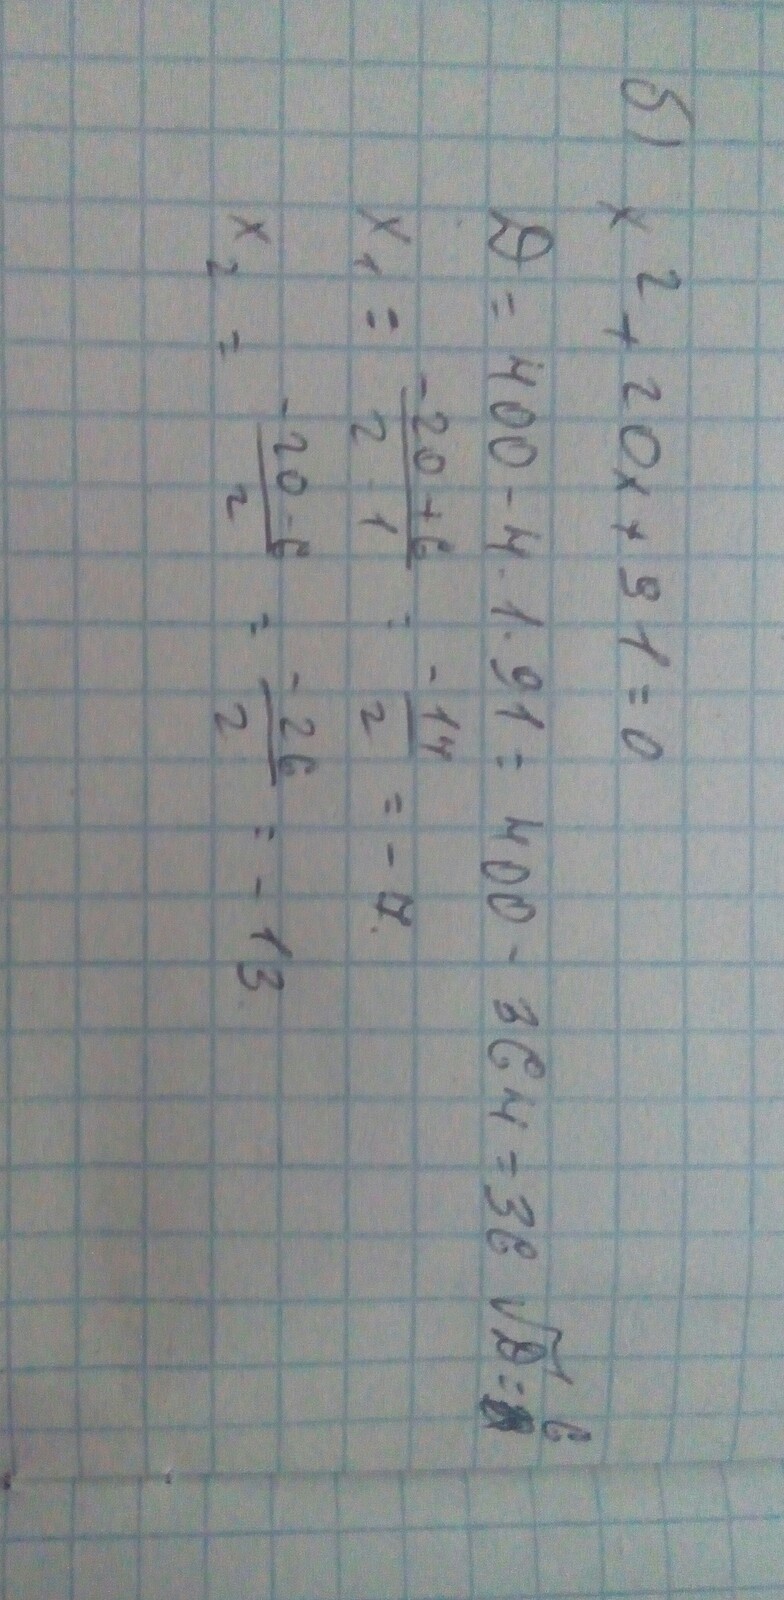 б) x² + 20x + 91 = 0
D = 400 - 4 · 1 · 91 = 400 - 364 = 36 √D = 6
x₁ = (-20 + 6)/(2 · 1) = -14/2 = -7.
x₂ = (-20 - 6)/2 = -26/2 = -13